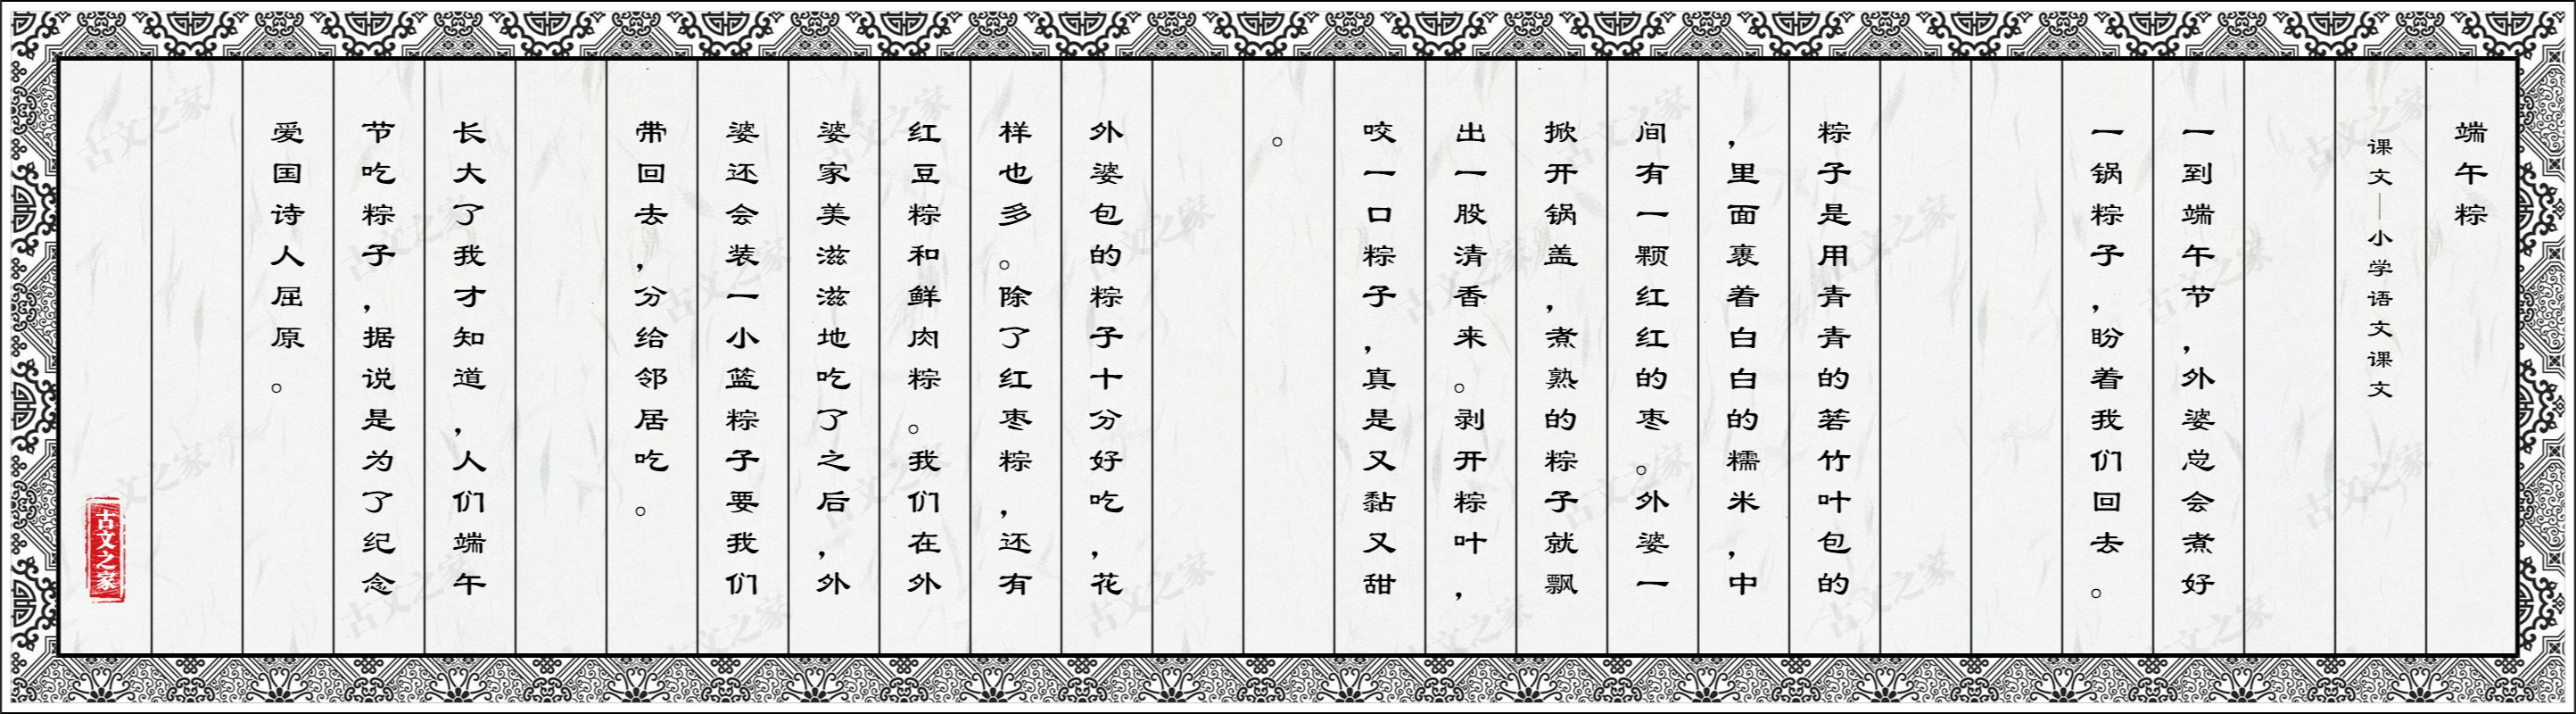 端午粽
课文—小学语文课文
一到端午节，外婆总会煮好
一锅粽子，盼着我们回去。
粽子是用青青的箬竹叶包的
，里面裹着白白的糯米，中
间有一颗红红的枣。外婆一
掀开锅盖，煮熟的粽子就飘
出一股清香来。剥开粽叶，
咬一口粽子，真是又黏又甜
。
外婆包的粽子十分好吃，花
样也多。除了红枣粽，还有
红豆粽和鲜肉粽。我们在外
婆家美滋滋地吃了之后，外
婆还会装一小篮粽子要我们
带回去，分给邻居吃。
长大了我才知道，人们端午
节吃粽子，据说是为了纪念
爱国诗人屈原。
古文之家